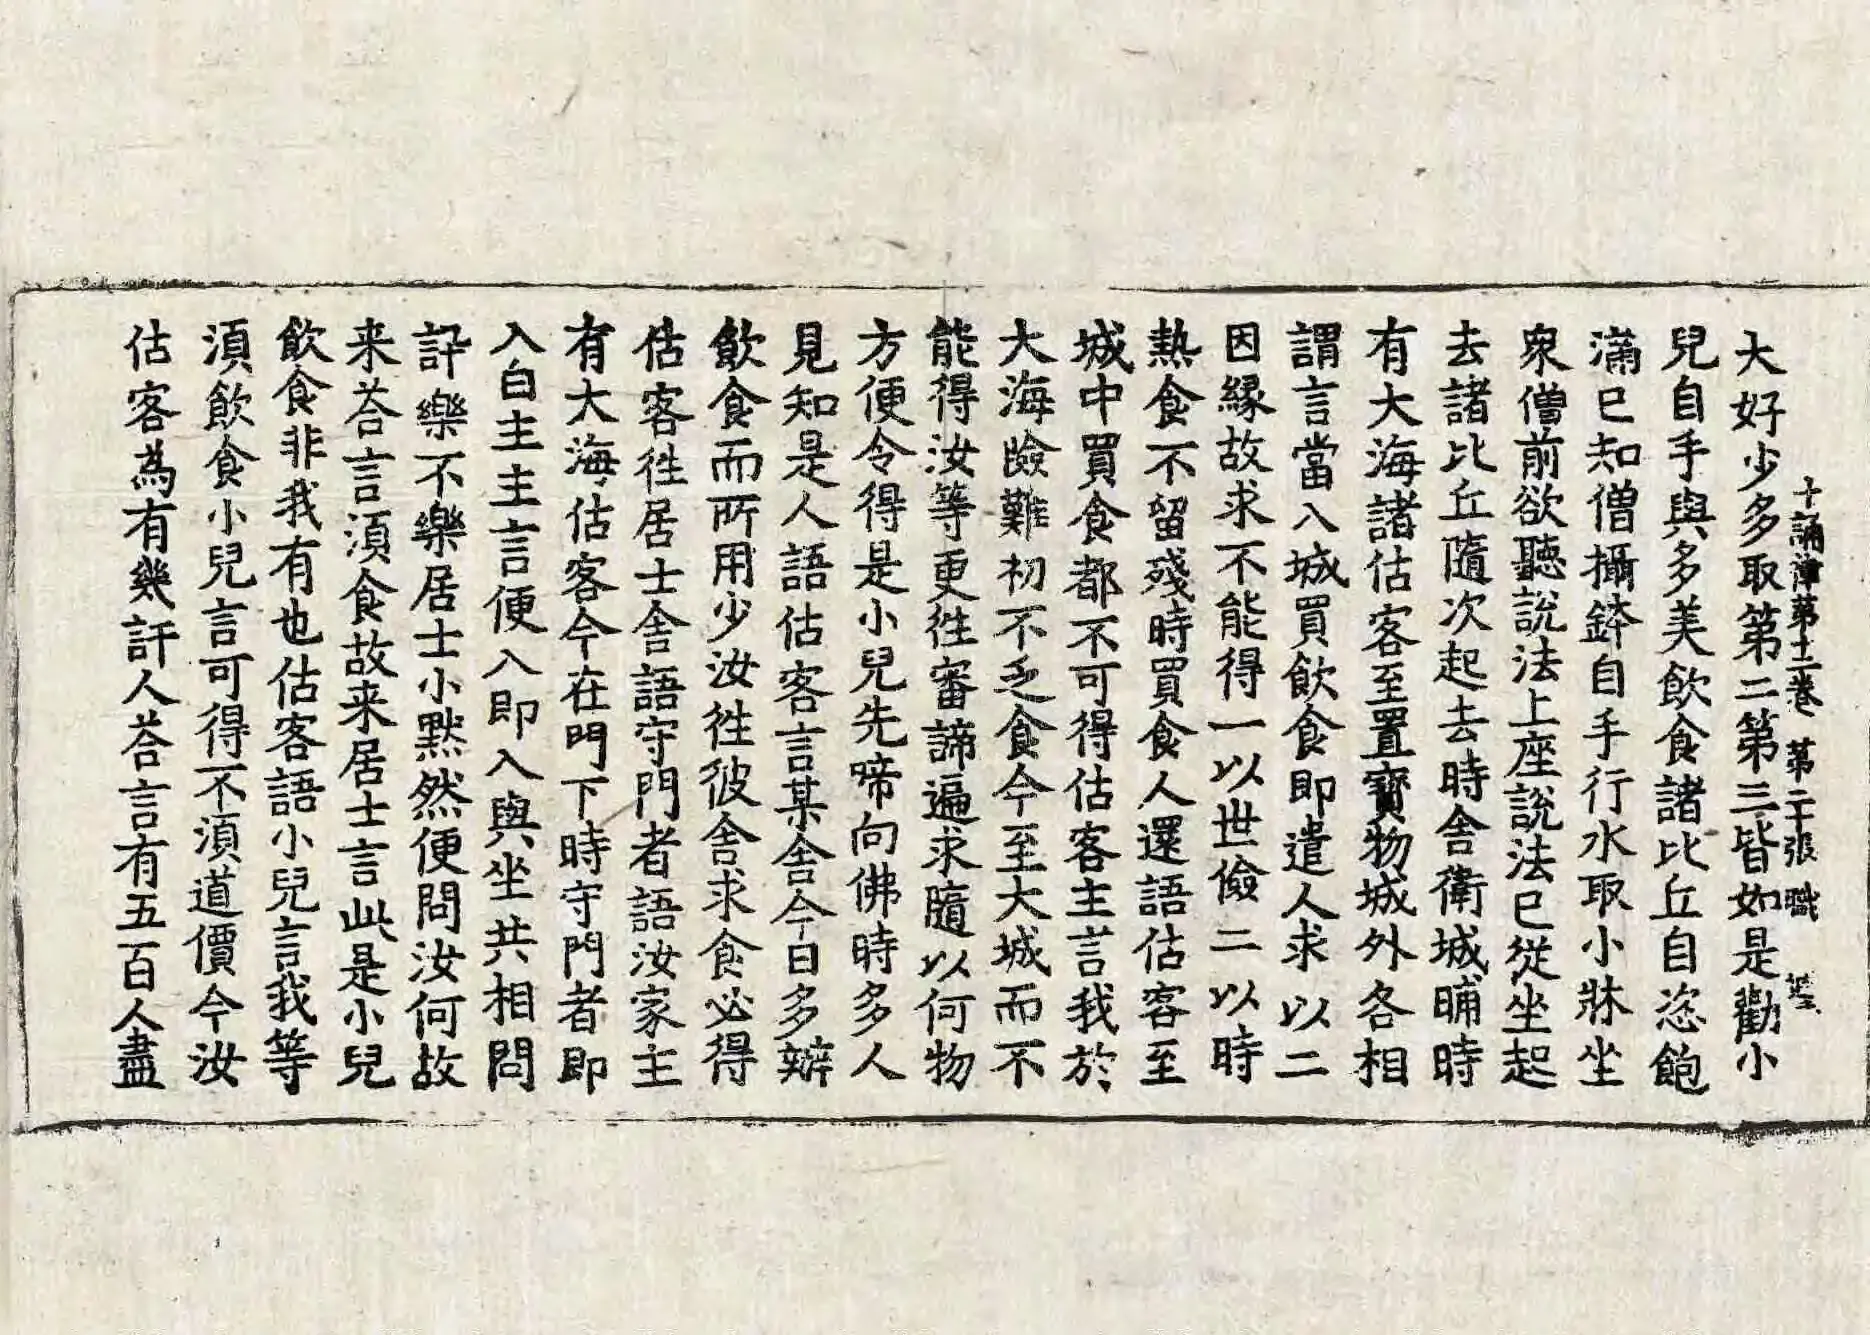 十誦律第十二卷 第二十張 職
大好少多取第二第三皆如是勸小
兒自手與多美飲食諸比丘自恣飽
滿已知僧攝鉢自手行水取小牀坐
衆僧前欲聽說法上座說法已從坐起
去諸比丘隨次起去時舍衛城晡時
有大海諸估客至置寶物城外各相
謂言當入城買飲食即遣人求以二
因緣故求不能得一以世儉二以時
熱食不留殘時買食人還語估客至
城中買食都不可得估客主言我於
大海險難初不乏食今至大城而不
能得汝等更往審諦遍求隨以何物
方便令得是小兒先啼向佛時多人
見知是人語估客言某舍今日多辦
飲食而所用少汝往彼舍求食必得
估客往居士舍語守門者語汝家主
有大海估客今在門下時守門者即
入白主主言便入即入與坐共相問
訊樂不樂居士小默然便問汝何故
来荅言湏食故来居士言此是小兒
飲食非我有也估客語小兒言我等
湏飲食小兒言可得不湏道價今汝
估客為有幾許人荅言有五百人盡